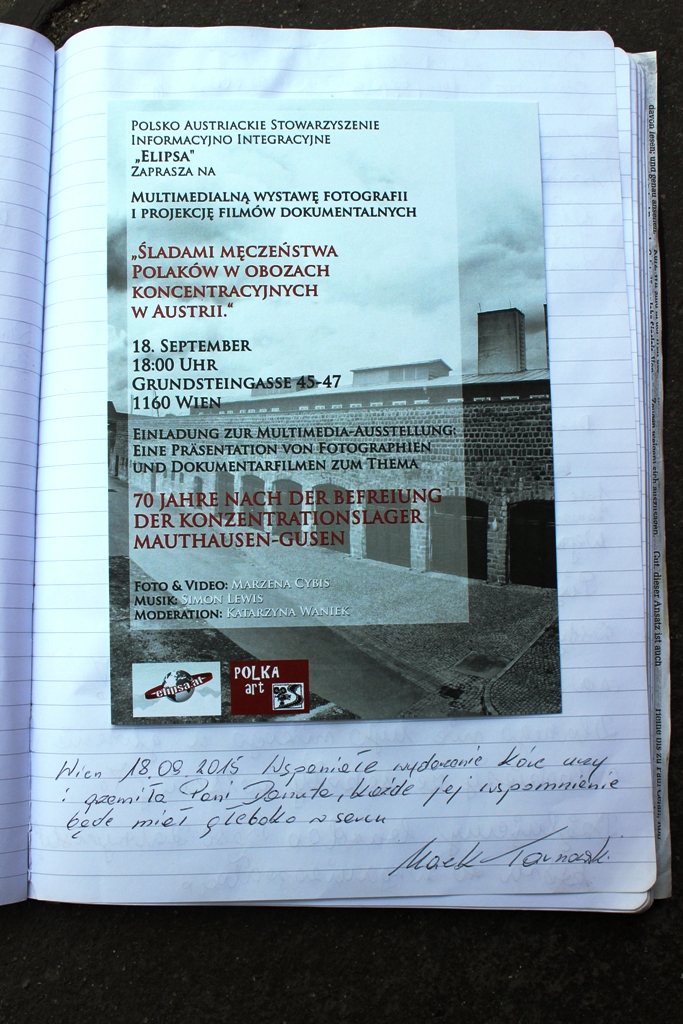 Polsko Austriackie Stowarzyszenie
Informacyjno Integracyjne
„Elipsa"
Zaprasza na
Multimedialną wystawę fotografii
i projekcję filmów dokumentalnych
„Śladami męczeństwa
Polaków w obozach
koncentracyjnych
w Austrii."
18. September
18:00 Uhr
Grundsteingasse 45-47
1160 Wien
Einladung zur Multimedia-Ausstellung:
Eine Präsentation von Fotographien
und Dokumentarfilmen zum Thema
70 Jahre nach der Befreiung
der Konzentrationslager
Mauthausen-Gusen
Foto & Video: Marzena Cybis
Musik: Simon Lewis
Moderation: Katarzyna Waniek
elipsa.at
POLKA
art
Wien 18.09.2015 Wspaniałe wydarzenie
i Pani Danuta, każde jej wspomnienie
będe miał głęboko w sercu
Marek